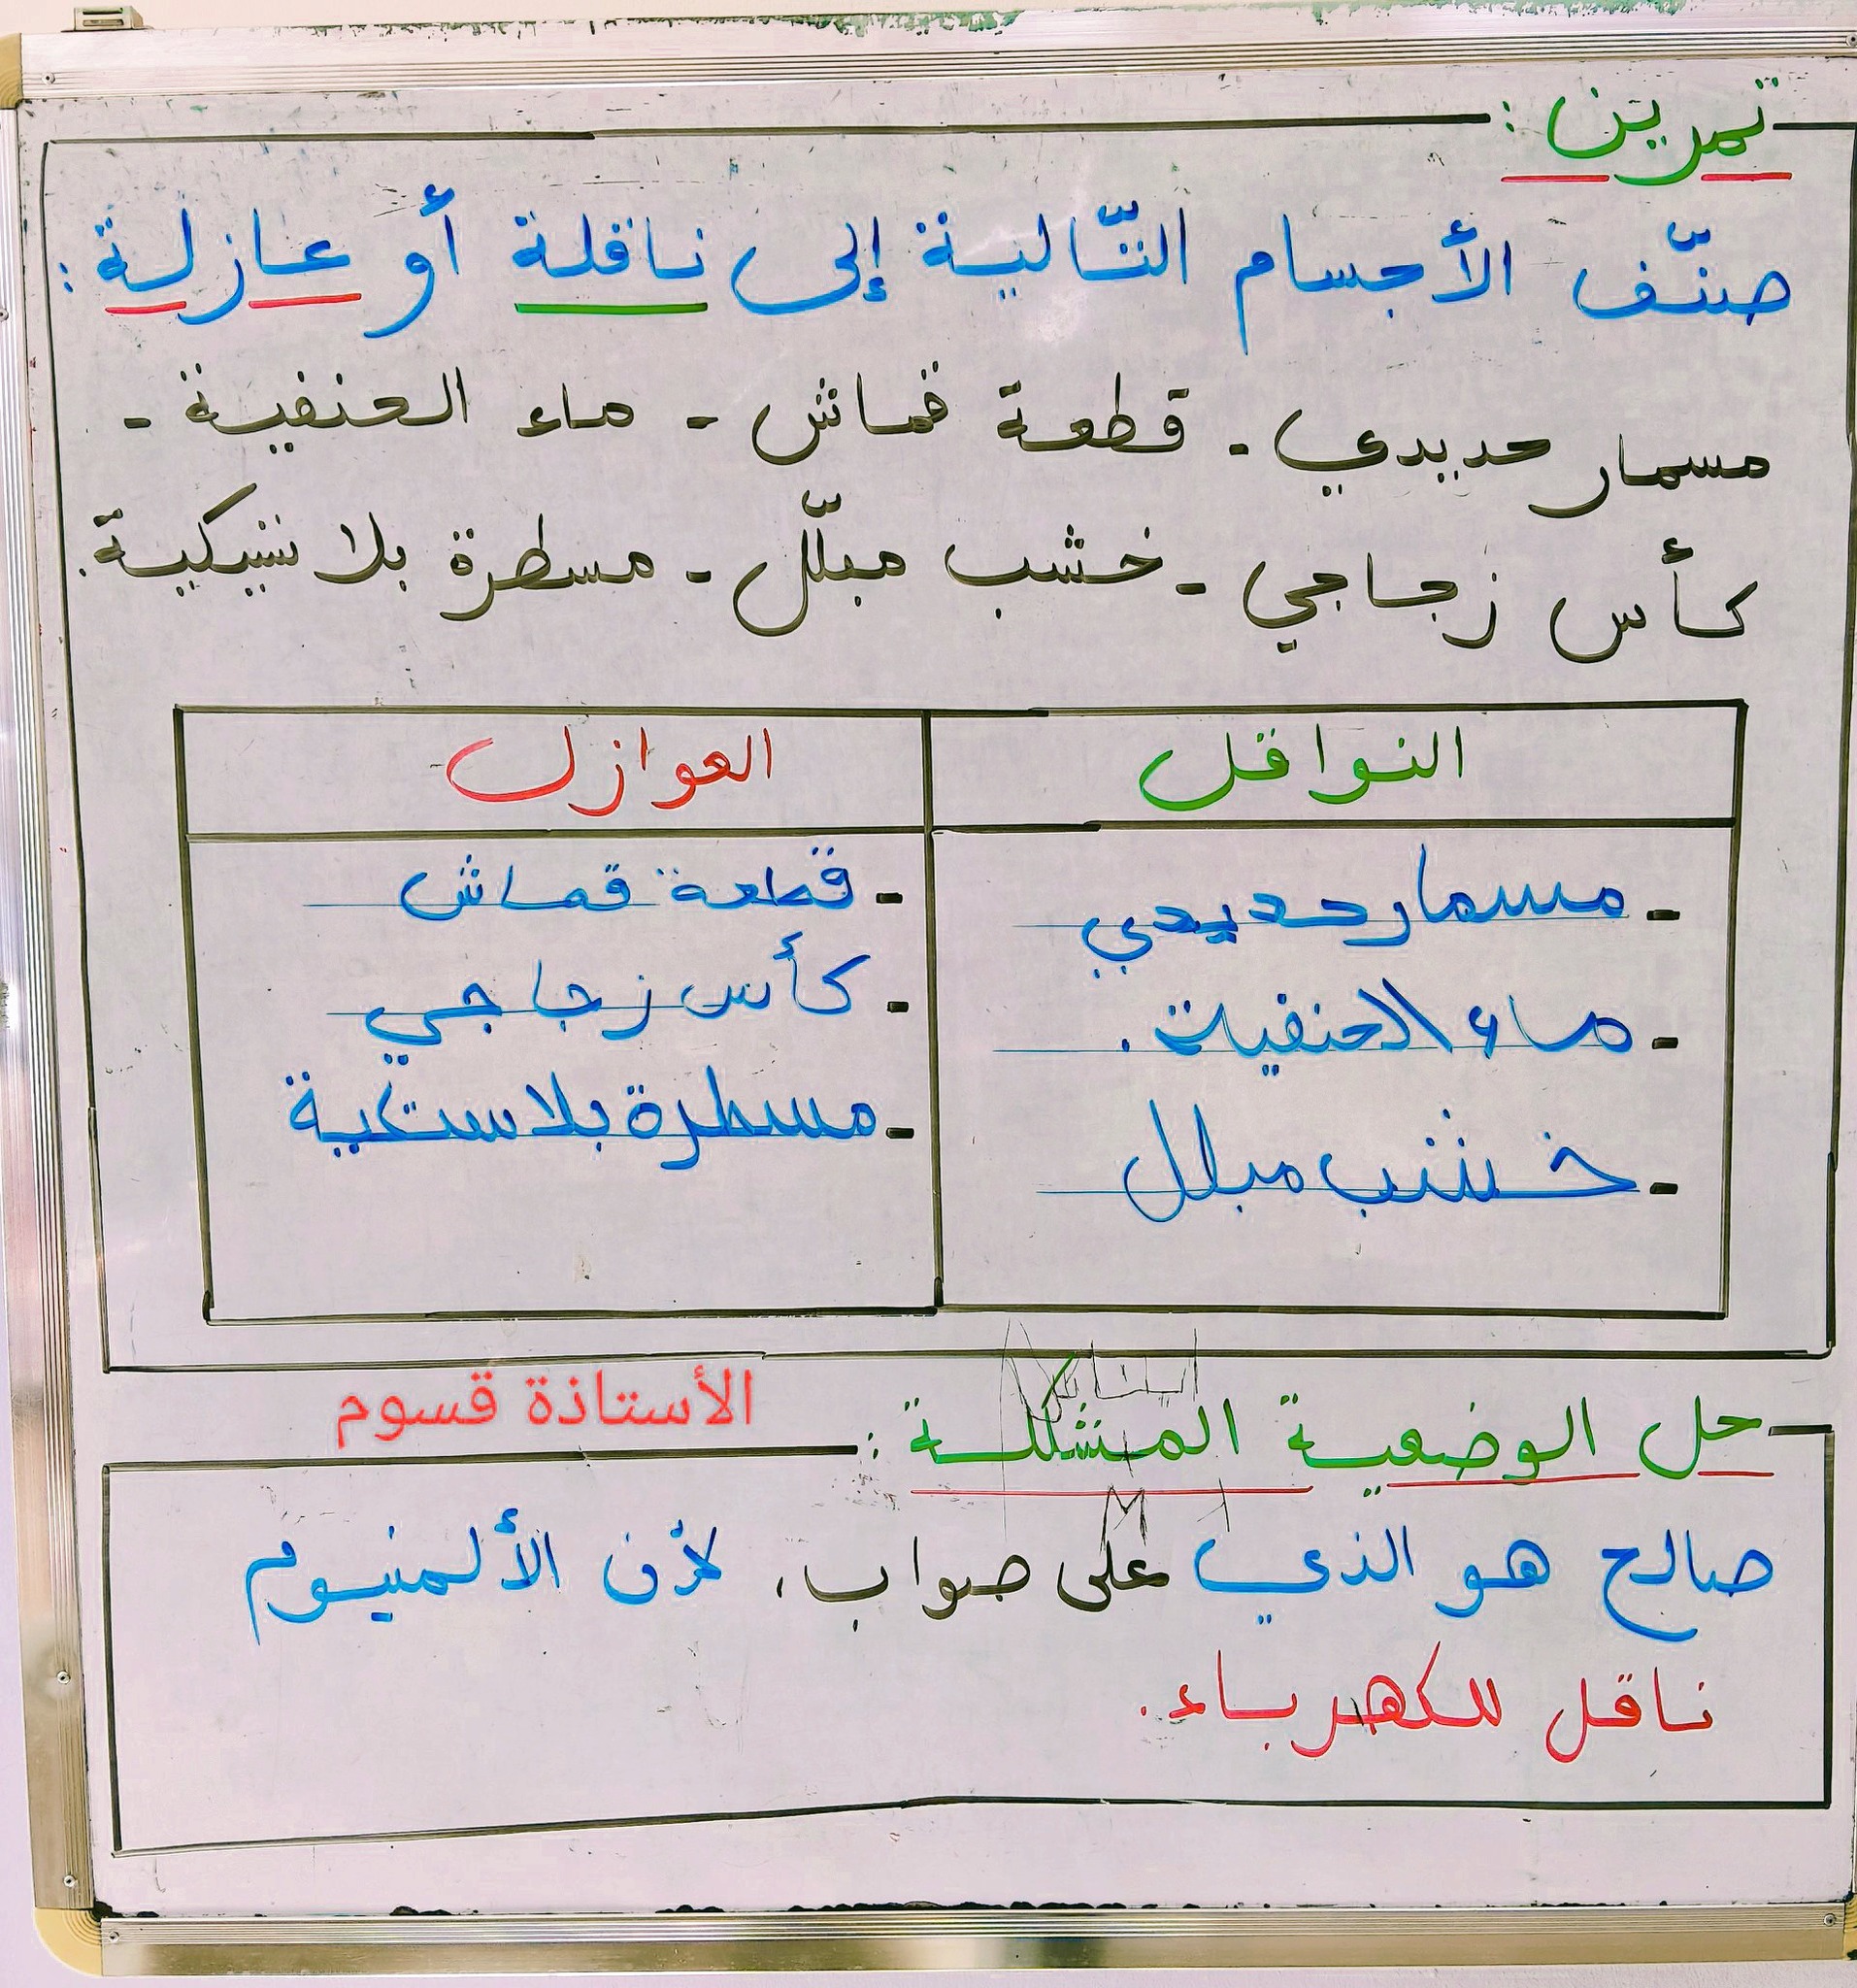 تمرين :
صنّف الأجسام التّالية إلى ناقلة أو عازلة :
مسمار حديدي - قطعة قماش - ماء الحنفية -
كأس زجاجي - خشب مبلّل - مسطرة بلاستيكية.
النواقل
العوازل
- مسمار حديدي
- ماء الحنفية .
- خشب مبلل
- قطعة قماش
- كأس زجاجي
- مسطرة بلاستكية
الأستاذة قسوم
حل الوضعية المشكلة :
صالح هو الذي على صواب، لأن الألمنيوم
ناقل للكهرباء.